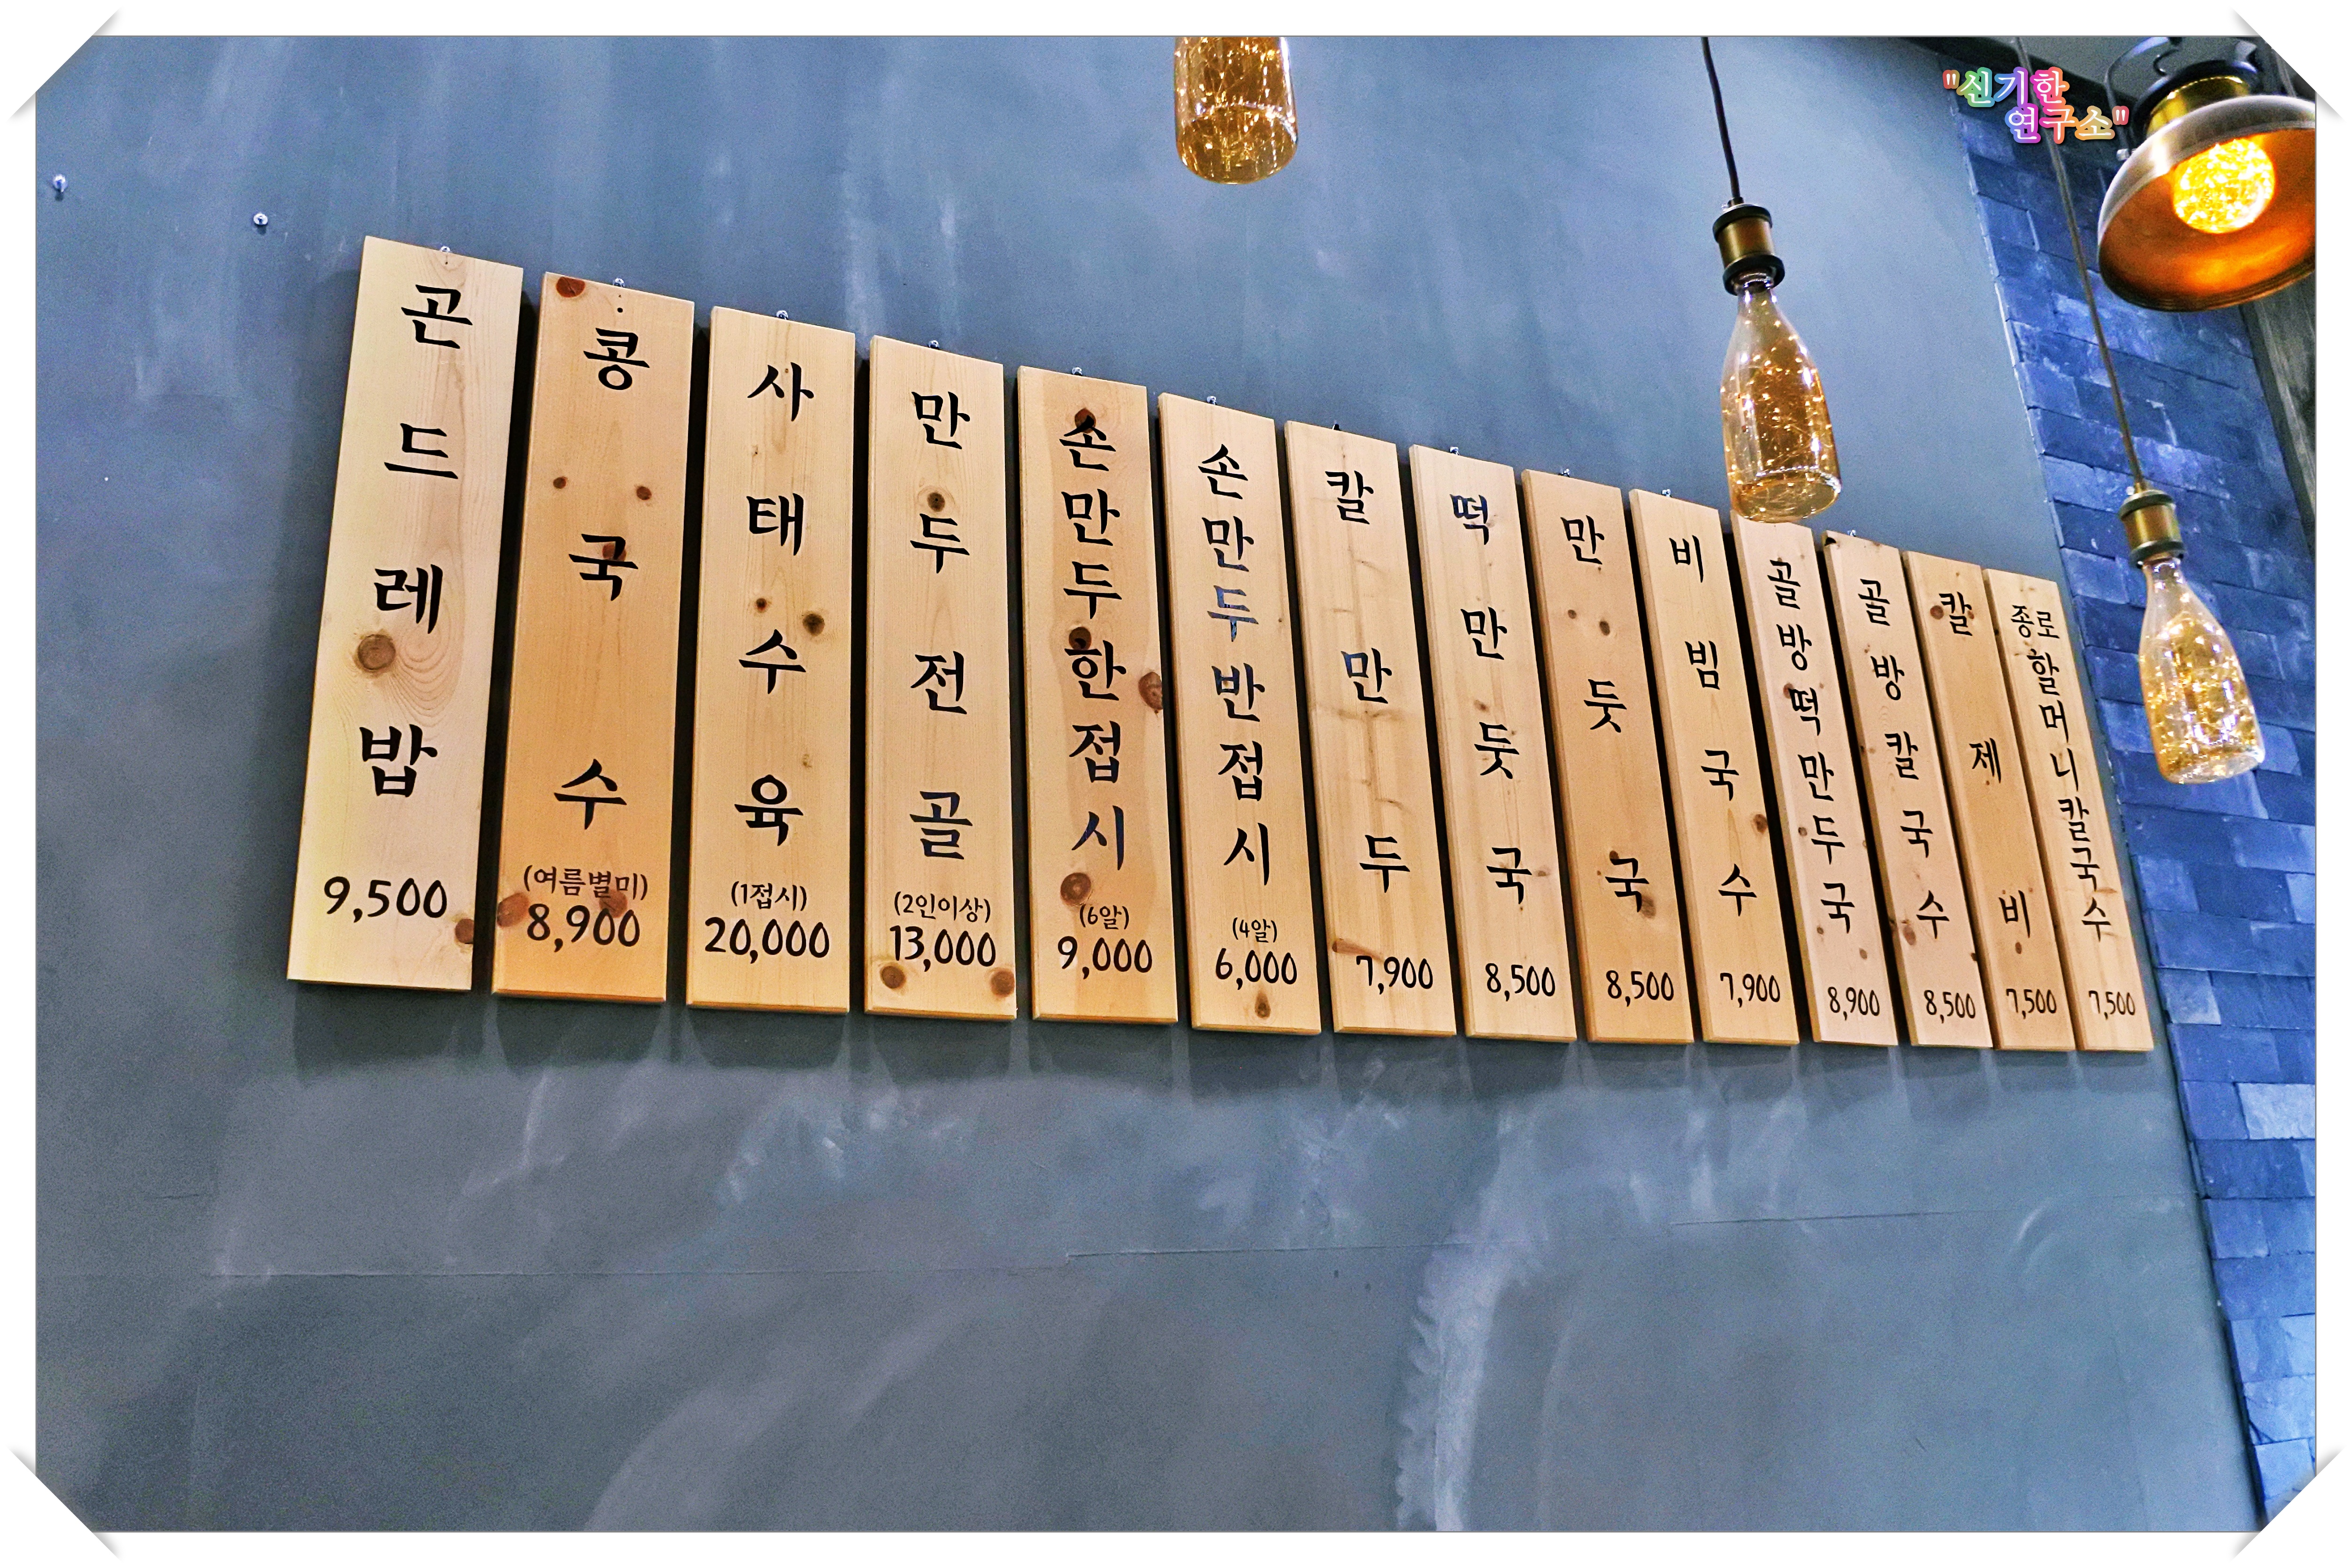 "신기한
연구소"
곤드레밥
9,500
콩국수
(여름별미)
8,900
사태수육
(1접시)
20,000
만두전골
(2인이상)
13,000
손만두한접시
(6알)
9,000
손만두반접시
(4알)
6,000
칼만두
7,900
떡만둣국
8,500
만둣국
8,500
비빔국수
7,900
골방떡만두국
8,900
골방칼국수
8,500
칼제비
7,500
종로
할머니칼국수
7,500